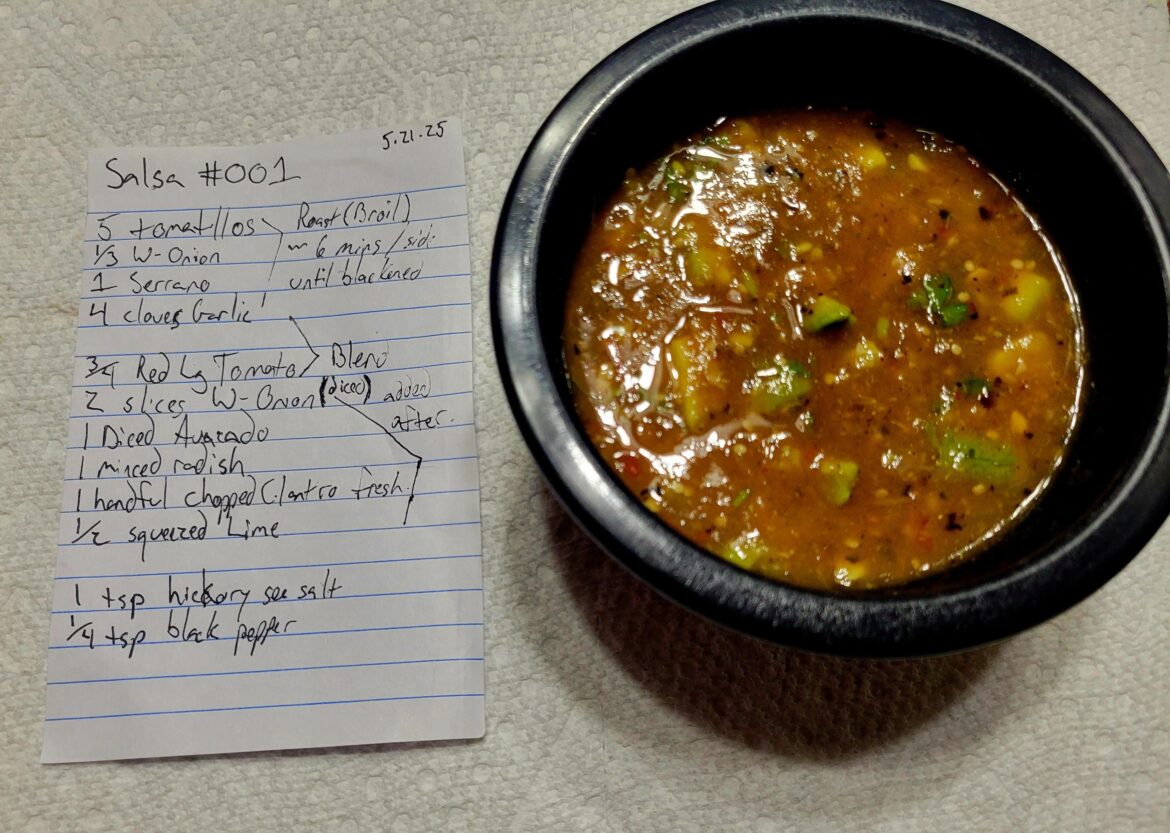 5.21.25
Salsa #001
5 tomatillos Roast (Broil)
1/3 W-Onion ~ 6 mins/side
1 Serrano until blackened
4 cloves Garlic
3/4 Red Lg Tomato Blend
2 slices W-Onion (diced) added
1 Diced Avacado after.
1 minced radish
1 handful chopped Cilantro fresh.
1/2 squeezed Lime
1 tsp hickory sea salt
1/4 tsp black pepper